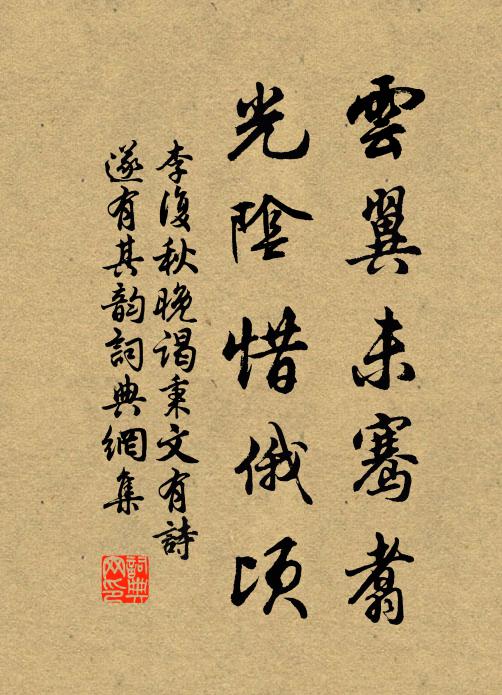 雲翼未騫翥
光陰惜俄頃
李復秋晚謁秉文有詩
遂有其韵詞典網集
詞典
网印